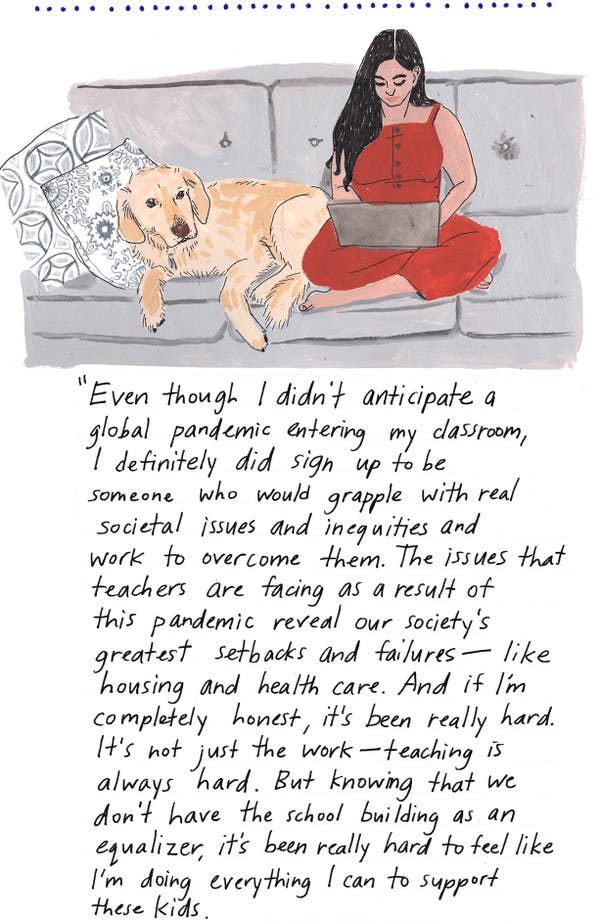 "Even though I didn't anticipate a
global pandemic entering my classroom,
I definitely did sign up to be
someone who would grapple with real
societal issues and inequities and
work to overcome them. The issues that
teachers are facing as a result of
this pandemic reveal our society's
greatest setbacks and failures— like
housing and health care. And if I'm
completely honest, it's been really hard.
It's not just the work—teaching is
always hard. But knowing that we
don't have the school building as an
equalizer, it's been really hard to feel like
I'm doing everything I can to support
these kids.